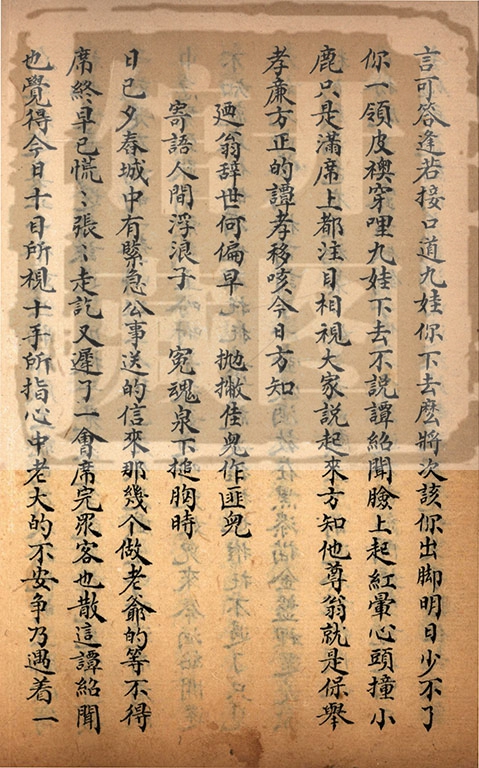 言可答逢若接口道九娃你下去麽將次該你出脚明日少不了
你一領皮襖穿哩九娃下去不說譚紹聞臉上起紅暈心頭撞小
鹿只是滿席上都注目相視大家說起來方知他尊翁就是保舉
孝廉方正的譚孝移咳今日方知
廼翁辞世何偏早　抛撇佳兒作匪兒
寄語人間浮浪子　寃魂泉下搥胸時
日已夕舂城中有緊急公事送的信來那幾个做老爺的等不得
席終早已慌〻張〻走訖又遲了一會席完眾客也散這譚紹聞
也覺得今日十目所視十手所指心中老大的不安争乃遇着一